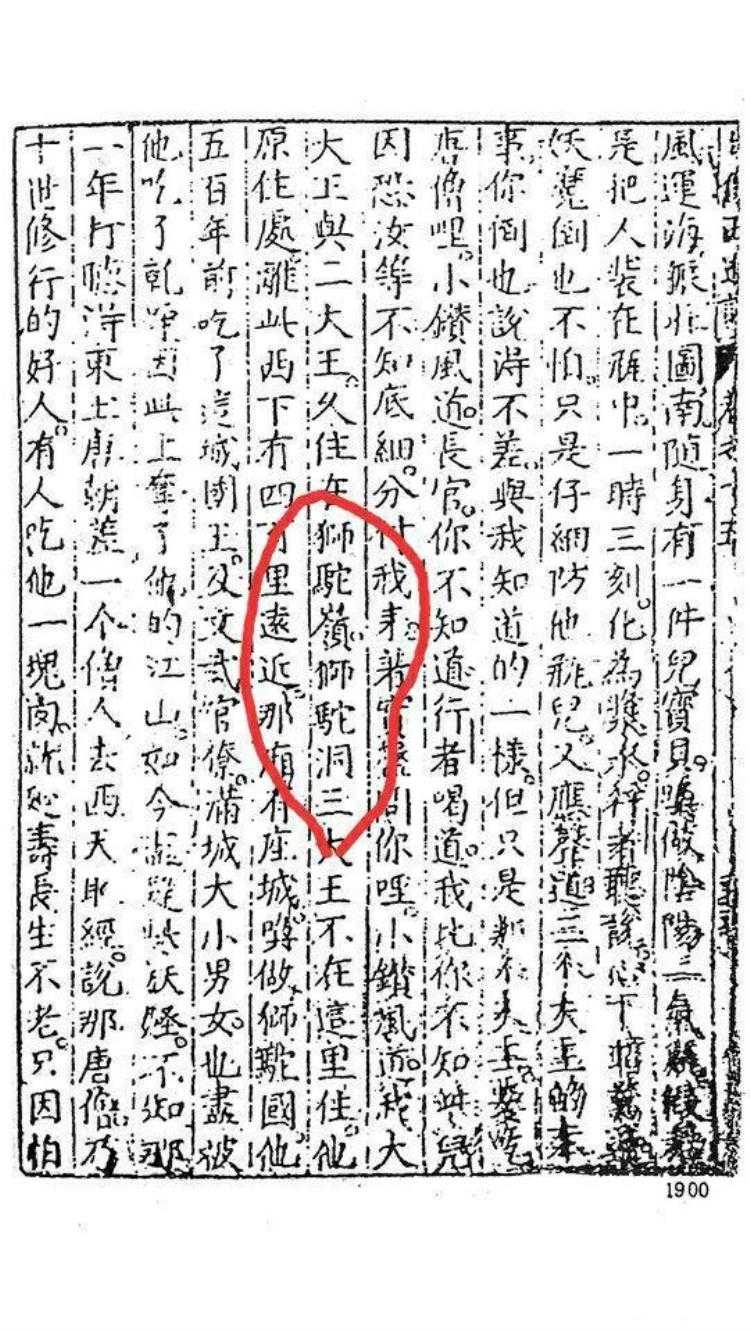 風運海振北圖南隨身有一件兒寶貝喚做陰陽二氣瓶
是把人裝在瓶中一時三刻化為漿水行者聽說心下
妖魔倒也不怕只是仔細防他瓶兒又應聲道三个大王的本
事你倒也說得不差與我知道的一樣但只是那个大王要吃
唐僧哩小鑽風道長官你不知道行者喝道我比你不知些兒
因恐汝等不知底細分付我來着實盤問你哩小鑽風道我大
大王與二大王久住在獅駝嶺獅駝洞三大王不在這里住他
原住處離此西下有四百里遠近那廂有座城喚做獅駝國他
五百年前吃了這城國王及文武官僚滿城大小男女也盡被
他吃了乾淨因此上奪了他的江山如今盡是些妖怪不知那
一年打聽得東土唐朝差一个僧人去西天取經說那唐僧乃
十世修行的好人有人吃他一塊肉就延壽長生不老只因怕
1900